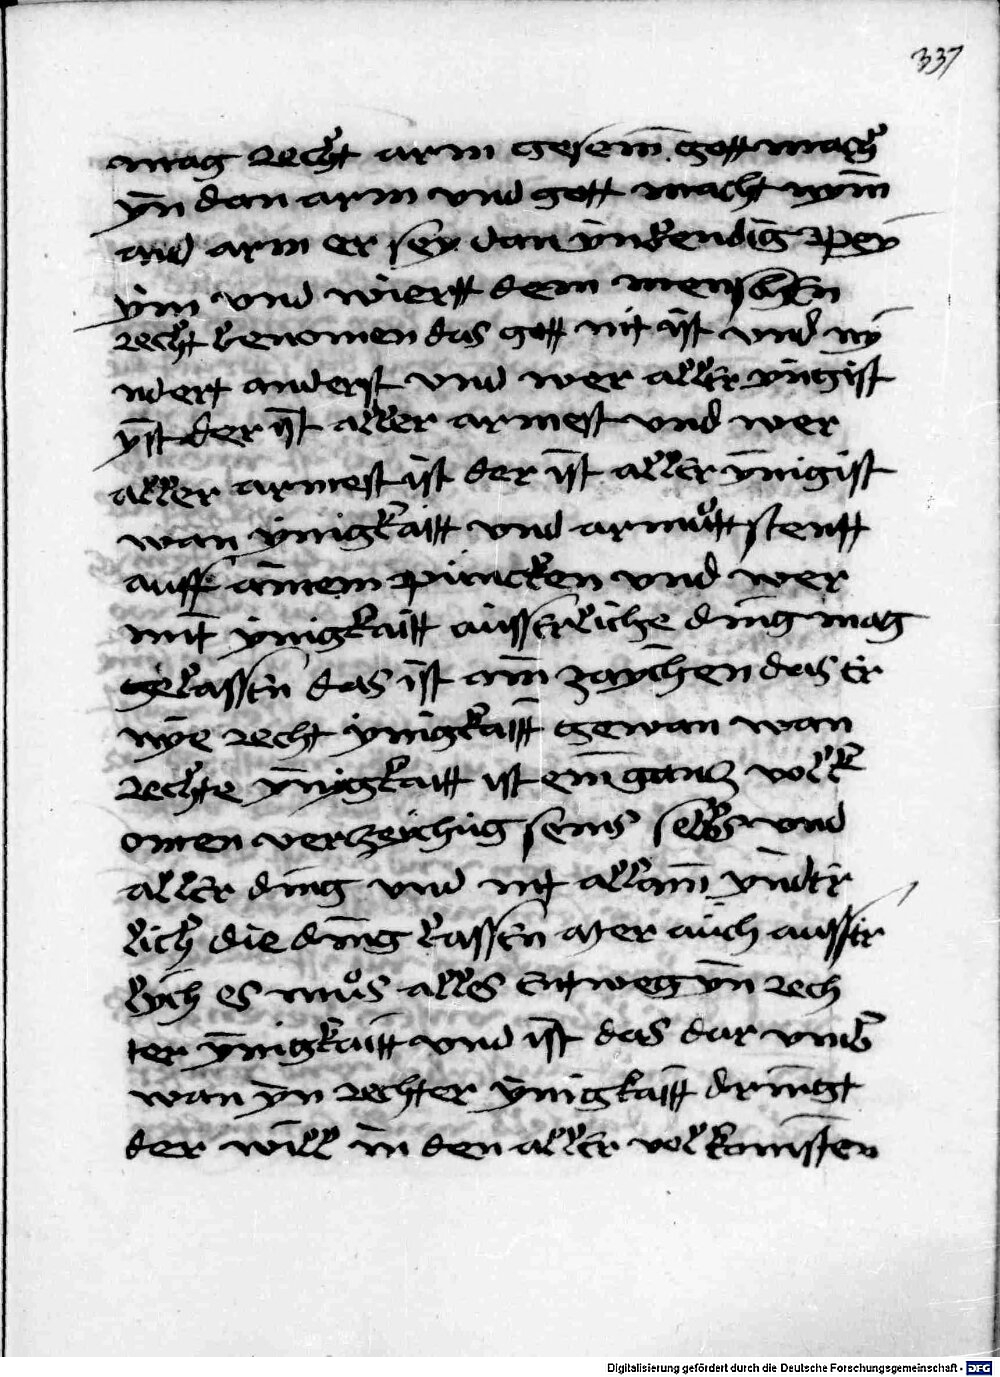 337
mag recht arm gesein gott mach
yn dan arm vnd gott macht nym
and arm er sey dan ynbendig pey
ym vnd wiertt dem menschen
recht benomen das gott nit yst vnd ny
ndert anderst vnd wer aller yngist
yst der yst aller armest vnd wer
aller armest ist der ist aller ynigist
wan ynigkaitt vnd armůtt stentt
auff ainem puncken vnd wer
mit ynigkaitt ausserliche ding mag
gelassen das ist ain zaychen das er
nye recht ynigkaitt gewan wan
rechte ynigkaitt ist ein gantz volk
omen verzeichūg seins selbs vnd
aller ding vnd nit allain ynder
lich die ding lassen aber auch ausser
lych es můs alles entweg yn rech
ter ynigkaitt vnd ist das dar vmb
wan yn rechter ynigkaitt dringt
der will in den aller volkomisten
Digitalisierung gefördert durch die Deutsche Forschungsgemeinschaft - DFG